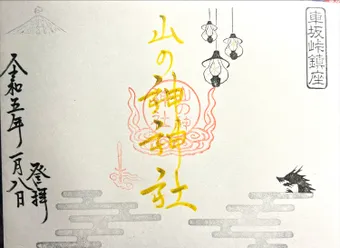 車坂峠鎮座
山の神神社
令和五年一月八日
登拝